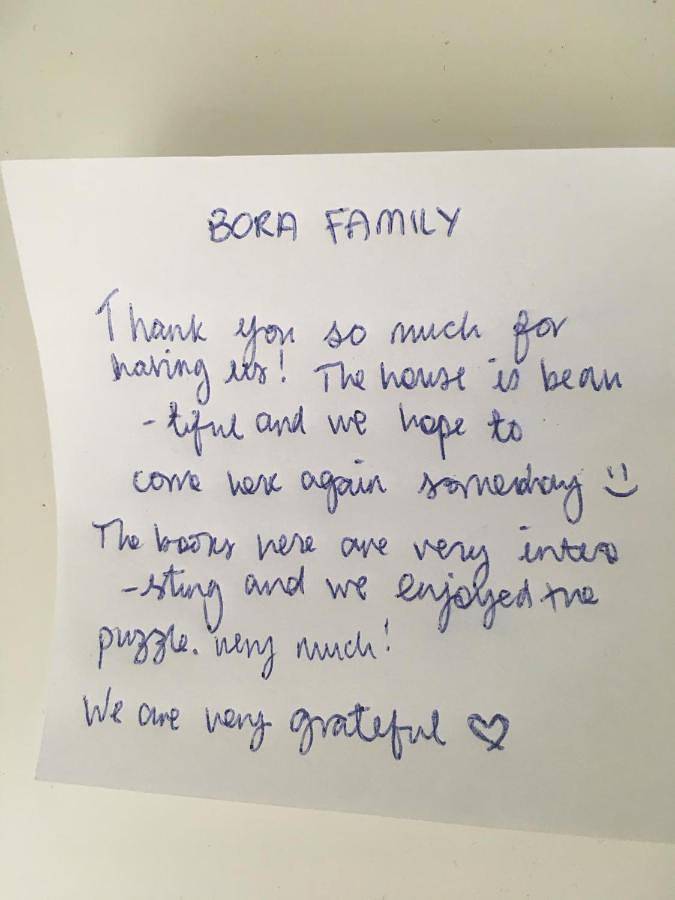 BORA FAMILY
Thank you so much for
having us! The house is beau
-tiful and we hope to
come here again someday :)
The books here are very intere
-sting and we enjoyed the
puzzle. very much!
We are very grateful ♡